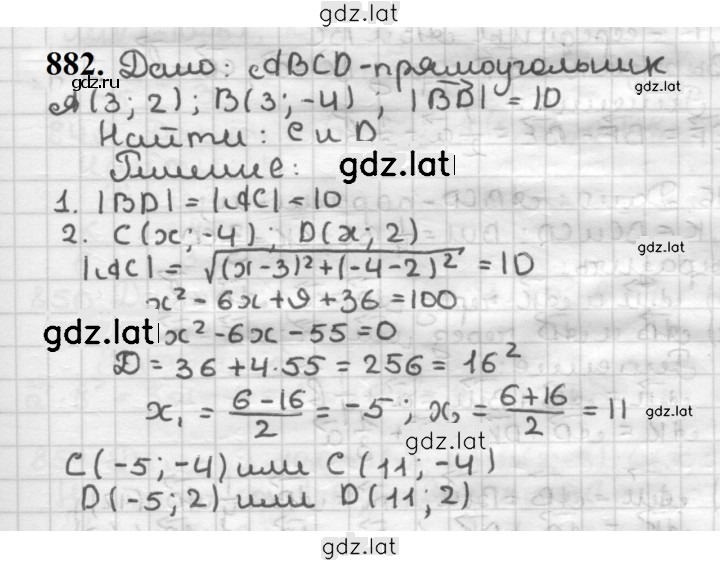 gdz.lat
882. Дано: ABCD-прямоугольник
gdz.ru
gdz.lat
A(3; 2); B(3; -4), |BD| = 10
Найти: C и D
gdz.lat
Решение:
1. |BD| = |AC| = 10
2. C(x; -4); D(x; 2)
gdz.lat
|AC| = √(x-3)²+(-4-2)² = 10
x² - 6x + 9 + 36 = 100
gdz.lat
x² - 6x - 55 = 0
D = 36 + 4·55 = 256 = 16²
x₁ = (6-16)/2 = -5; x₂ = (6+16)/2 = 11
gdz.lat
gdz.lat
C(-5; -4) или C(11; -4)
D(-5; 2) или D(11; 2)
gdz.lat
gdz.lat